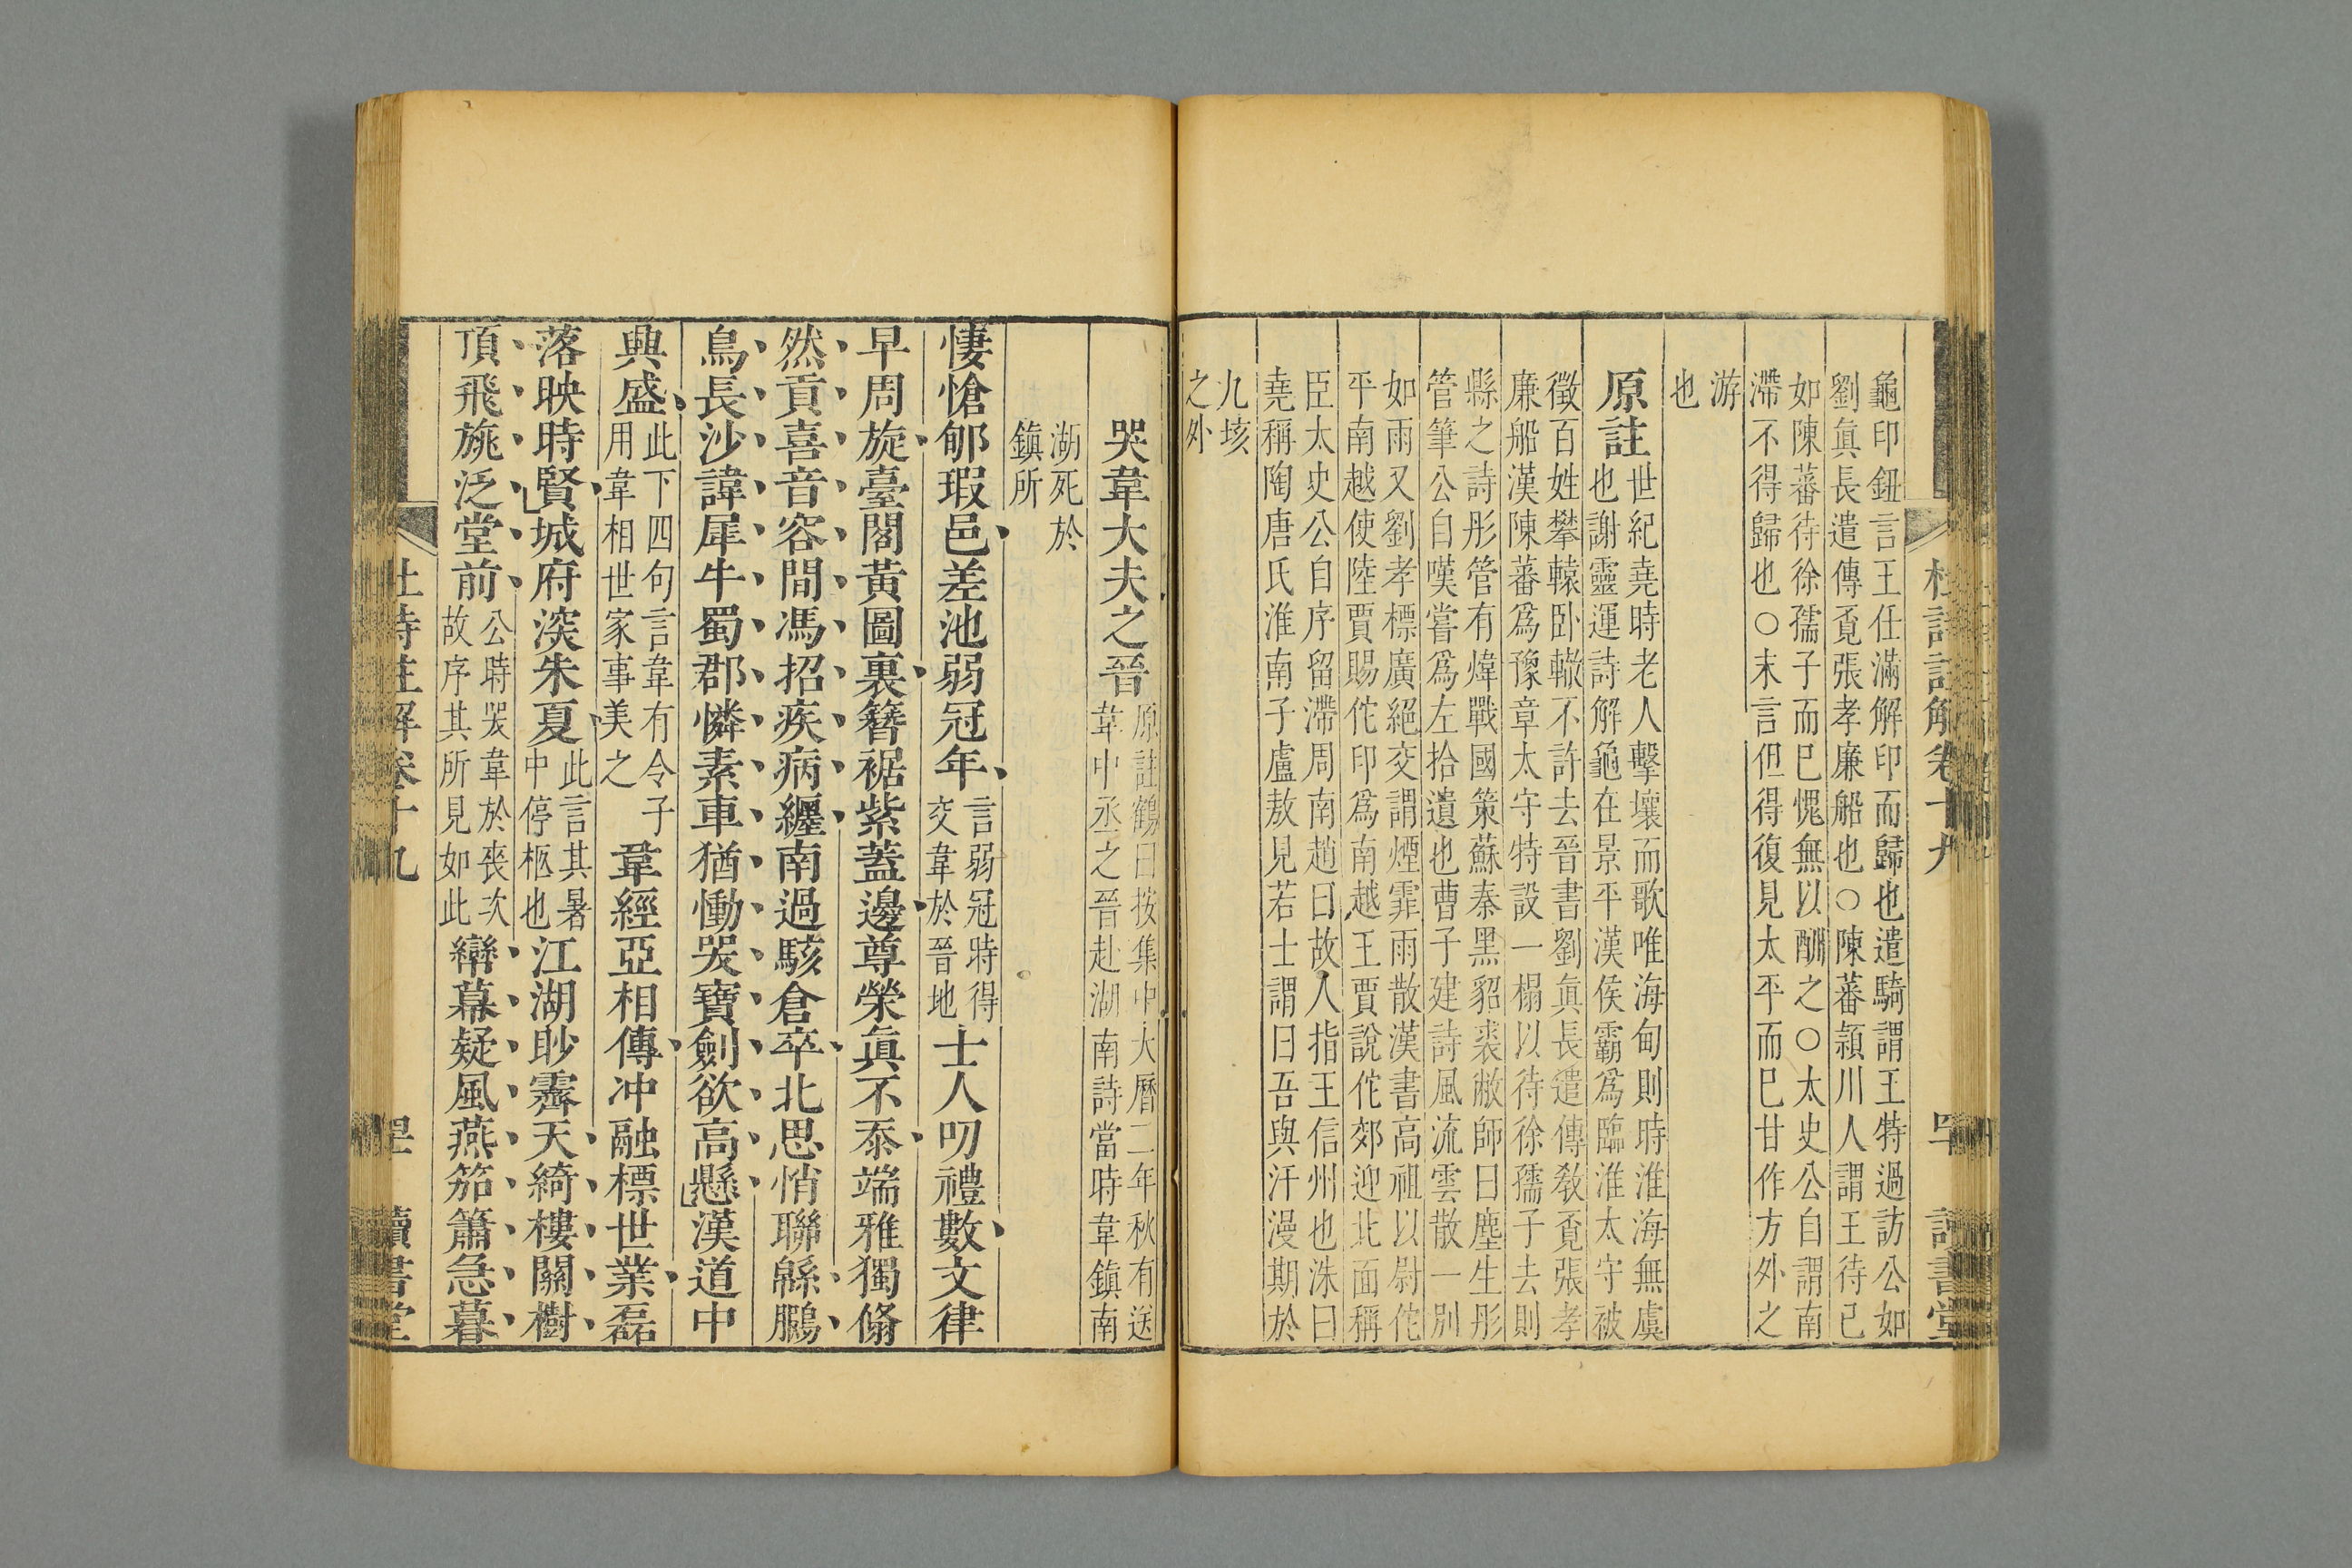 杜詩註解卷十九
讀書堂
龜印鈕言王任滿解印而歸也遣騎謂王特過訪公如
劉眞長遣傳覔張孝廉船也○陳蕃潁川人謂王待己
如陳蕃待徐孺子而已愧無以酬之○太史公自謂南
滯不得歸也○末言但得復見太平而已甘作方外之
游
也
原註
世紀堯時老人擊壤而歌唯海甸則時淮海無虞
也謝靈運詩解龜在景平漢侯霸爲臨淮太守被
徵百姓攀轅卧轍不許去晉書劉眞長遣傳敎覔張孝
廉船漢陳蕃爲豫章太守特設一榻以待徐孺子去則
縣之詩彤管有煒戰國策蘇秦黑貂裘敝師曰塵生彤
管筆公自嘆嘗爲左拾遺也曹子建詩風流雲散一別
如雨又劉孝標廣絕交謂煙霏雨散漢書高祖以尉佗
平南越使陸賈賜佗印爲南越王賈說佗郊迎北面稱
臣太史公自序留滯周南趙曰故人指王信州也洙曰
堯稱陶唐氏淮南子盧敖見若士謂曰吾與汗漫期於
九垓
之外
哭韋大夫之晉
原註鶴曰按集中大曆二年秋有送
韋中丞之晉赴湖南詩當時韋鎮南
湖死於
鎮所
悽愴郇瑕邑差池弱冠年
言弱冠時得
交韋於晉地
士人叨禮數文律
早周旋臺閣黃圖裏簪裾紫蓋邊尊榮眞不忝端雅獨翛
然貢喜音容間馮招疾病纏南過駭倉卒北思悄聯緜鵩
鳥長沙諱犀牛蜀郡憐素車猶慟哭寶劍欲高懸漢道中
興盛
此下四句言韋有令子
用韋相世家事美之
韋經亞相傳冲融標世業磊
落映時賢城府深朱夏
此言其暑
中停柩也
江湖眇霽天綺樓關樹
頂飛旐泛堂前
公時哭韋於喪次
故序其所見如此
帟幕疑風燕笳簫急暮
杜詩註解卷十九
讀書堂